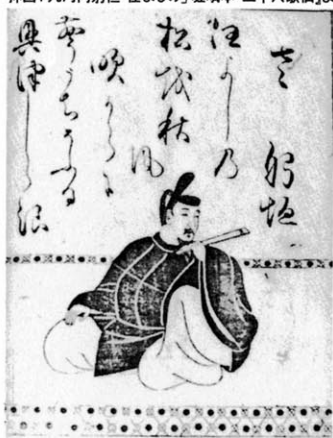 左 躬恒
住よし乃
松越秋風
吹からに
聲うちそふる
興津しら浪